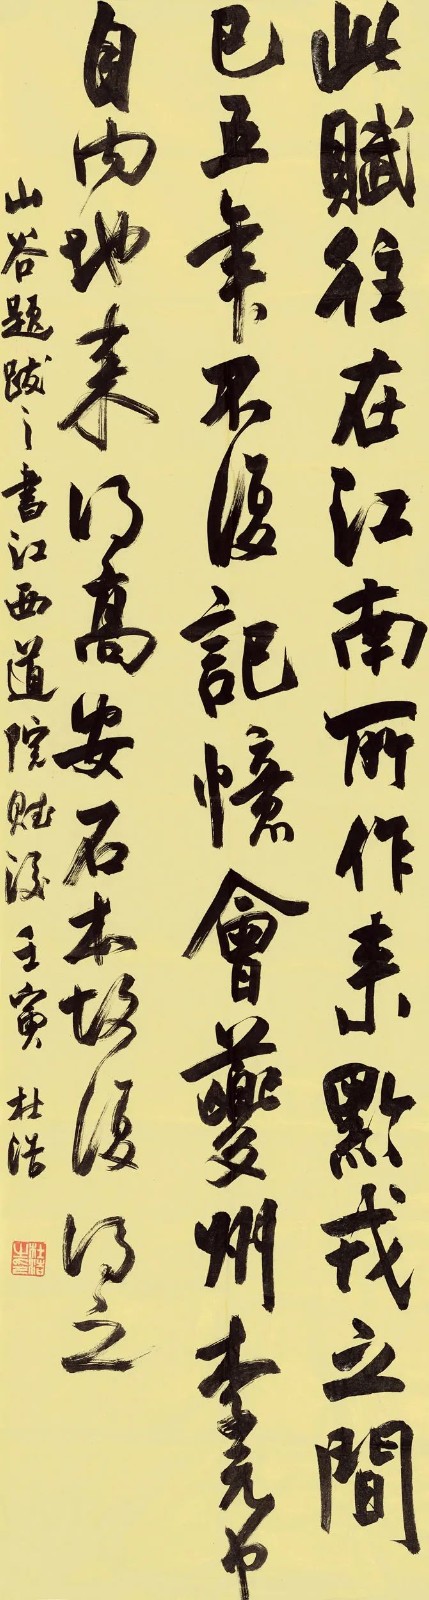 此賦往在江南所作來黔戎之間
已五年不復記憶會夔州李元中
自內地來得高安石本故復得之
山谷題跋之書江西道院賦後 壬寅 杜浩